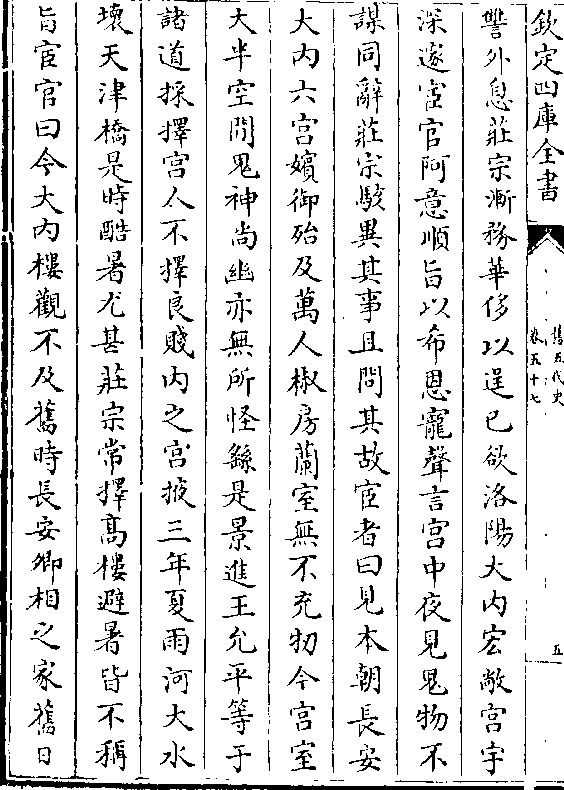 欽定四庫全書
舊五代史
卷五十七
五
讐外息莊宗漸務華侈以逞已欲洛陽大内宏敞宫宇
深邃宦官阿意順旨以希恩寵聲言宫中夜見鬼物不
謀同辭莊宗駭異其事且問其故宦者曰見本朝長安
大内六宫嬪御殆及萬人椒房蘭室無不充牣今宫室
大半空閒鬼神尚幽亦無所怪繇是景進王允平等于
諸道採擇宫人不擇良賤内之宫掖三年夏雨河大水
壞天津橋是時酷暑尤甚莊宗常擇高樓避暑皆不稱
旨宦官曰今大内樓觀不及舊時長安卿相之家舊日